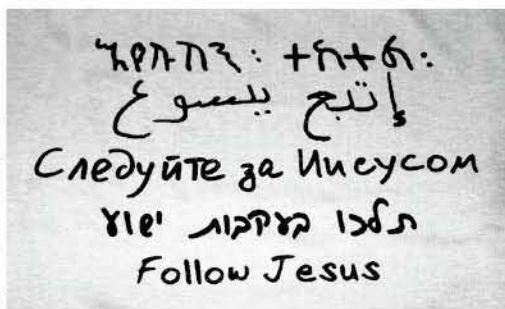 ኢየሱስን፡ ተከተል፡
إتبع يسوع
Следуйте за Иисусом
תלכו בעקבות ישוע
Follow Jesus